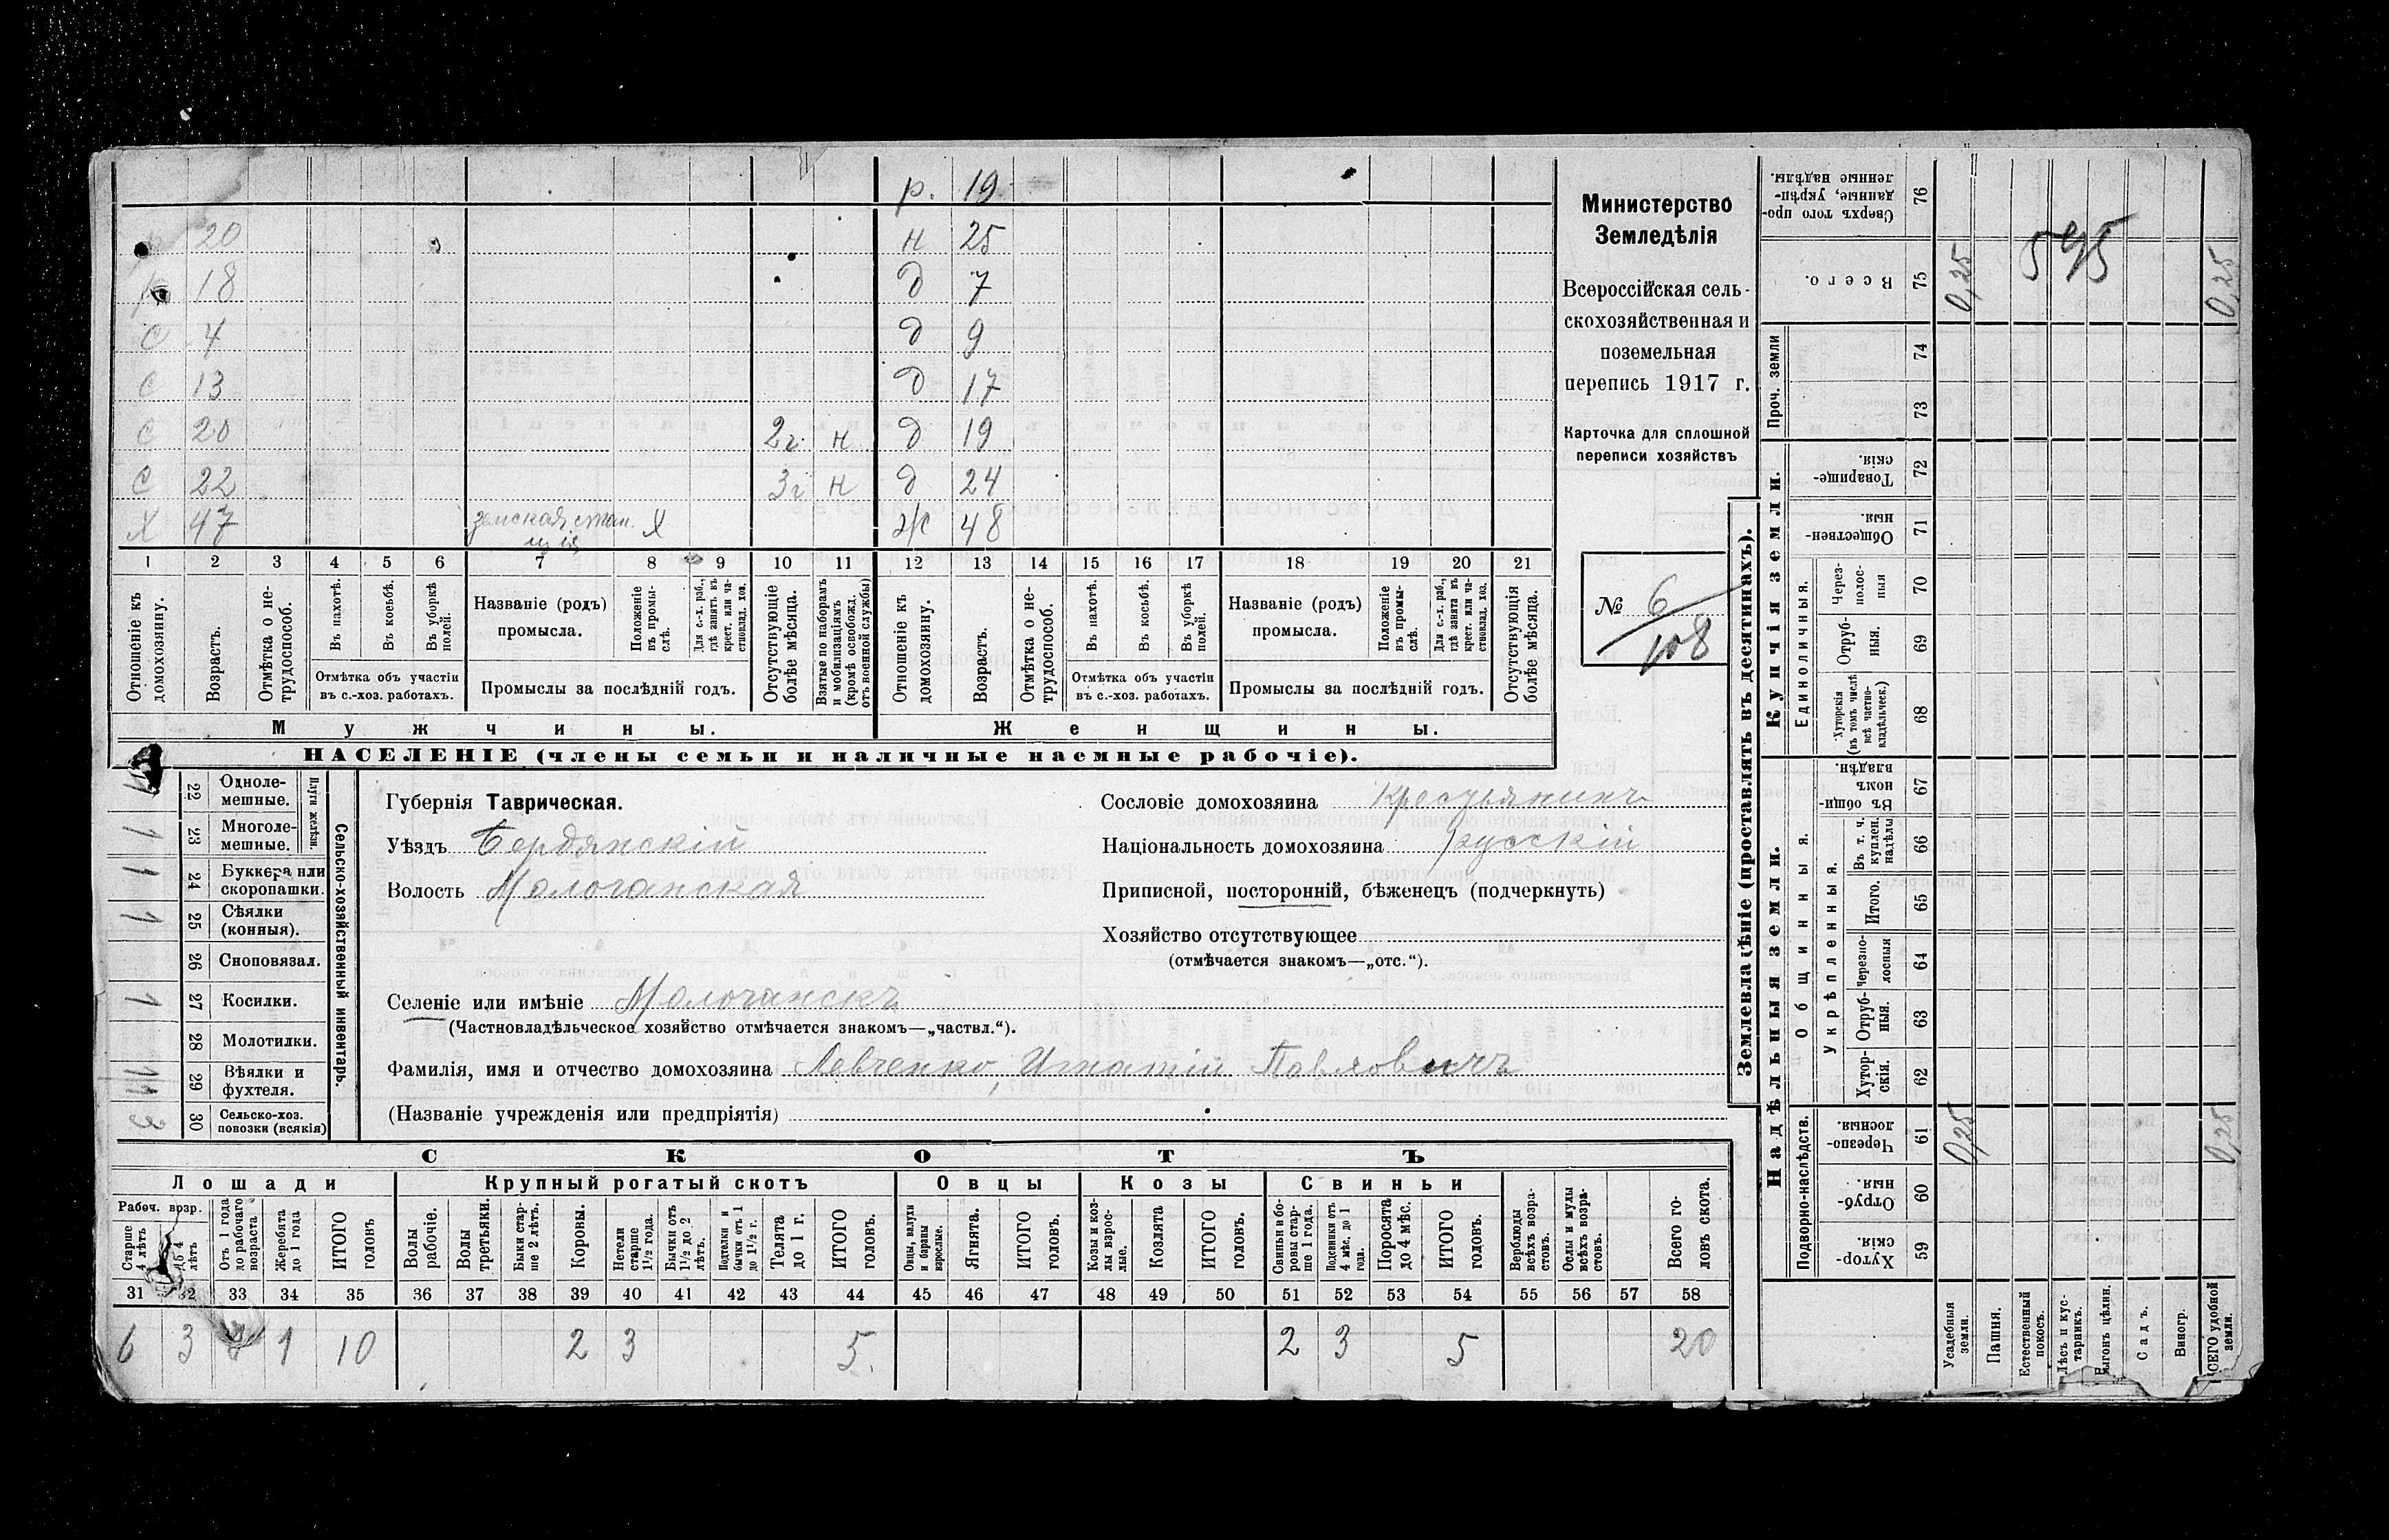 р. 19
20 н 25
18 д 7
с 4 д 9
с 13 д 17
с 20 2г. н. д 19
с 22 3г н д 24
Х 47 земская стан- Х ж 48
ція
1 2 3 4 5 6 7 8 9 10 11 12 13 14 15 16 17 18 19 20 21
Отношеніе къ домохозяину.
Возрастъ.
Отмѣтка о не-трудоспособ.
Въ пахотѣ.
Въ косьбѣ.
Въ уборкѣ полей.
Отмѣтка объ участіи
въ с.-хоз. работахъ.
Названіе (родъ)
промысла.
Положеніе въ промы-слѣ.
Для с.-х. раб., гдѣ занятъ въ крест. или ча-стновлад. хоз.
Промыслы за послѣдній годъ.
Отсутствующіе болѣе мѣсяца.
Взятые по наборамъ и мобилизаціямъ (кромѣ освобожд. отъ военной службы)
Отношеніе къ домохозяину.
Возрастъ.
Отмѣтка о не-трудоспособ.
Въ пахотѣ.
Въ косьбѣ.
Въ уборкѣ полей.
Отмѣтка объ участіи
въ с.-хоз. работахъ.
Названіе (родъ)
промысла.
Положеніе въ промы-слѣ.
Для с.-х. раб., гдѣ занята въ крест. или ча-стновлад. хоз.
Промыслы за послѣдній годъ.
Отсутствующія болѣе мѣсяца.
Мужчины. Женщины.
НАСЕЛЕНІЕ (члены семьи и наличные наемные рабочіе).
Министерство
Земледѣлія
Всероссійская сель-
скохозяйственная и
поземельная
перепись 1917 г.
Карточка для сплошной
переписи хозяйствъ
№ 6
108
Сельско-хозяйственный инвентарь.
Плуги желѣзн.
22 Одноле-мешные.
1 23 Многоле-мешные.
1 24 Буккера или скоропашки.
1 25 Сѣялки (конныя).
26 Сноповязал.
1 27 Косилки.
28 Молотилки.
29 Вѣялки и фухтеля.
3 30 Сельско-хоз. повозки (всякія)
Губернія Таврическая.
Уѣздъ Бердянскій
Волость Молочанская
Селеніе или имѣніе Молочанскъ
(Частновладѣльческое хозяйство отмѣчается знакомъ—„частвл.“).
Фамилія, имя и отчество домохозяина Левченко, Игнатій Павловичъ
(Названіе учрежденія или предпріятія)
Сословіе домохозяина Крестьянинъ
Національность домохозяина русскій
Приписной, посторонній, бѣженецъ (подчеркнуть)
Хозяйство отсутствующее
(отмѣчается знакомъ—„отс.“).
СКОТЪ
Лошади Крупный рогатый скотъ Овцы Козы Свиньи
Рабоч. возр.
Старше 4 лѣтъ
До 4 лѣтъ
Отъ 1 года до рабочаго возраста
Жеребята до 1 года
ИТОГО головъ
Волы рабочіе.
Волы третьяки.
Быки стар-ше 2 лѣтъ.
Коровы.
Нетели старше 1½ года.
Бычки отъ 1½ до 2 лѣтъ.
Подтелки и бычки отъ 1 до 1½ г.
Телята до 1 г.
ИТОГО головъ.
Овцы, валухи и бараны взрослые.
Ягнята.
ИТОГО головъ.
Козы и коз-лы взрос-лые.
Козлята
ИТОГО головъ.
Свиньи и бо-ровы стар-ше 1 года.
Подсвинки отъ 4 мѣс. до 1 года.
Поросята до 4 мѣс.
ИТОГО головъ.
Верблюды всѣхъ возра-стовъ.
Ослы и мулы всѣхъ возра-стовъ.
Всего го-ловъ скота.
31 32 33 34 35 36 37 38 39 40 41 42 43 44 45 46 47 48 49 50 51 52 53 54 55 56 57 58
6 3 1 10 2 3 5. 2 3 5 20
Землевладѣніе (проставлять въ десятинахъ).
Купчія земли.
Надѣльныя земли.
76 Сверхъ того про-данные, укрѣп-ленные надѣлы.
75 Всего. 0,25 595 0,25
Проч. земли
74
73
72 Товарище-скія.
71 Обществен-ныя.
Единоличныя.
70 Через-полос-ныя
69 Отруб-ныя.
68 Хуторскія (въ томъ числѣ всѣ частно-владѣльческ.)
67 Въ общи-номъ владѣн.
Общинныя.
Укрѣпленныя.
66 Въ т. ч. куплен. надѣлы
65 Итого.
64 Черезпо-лосныя
63 Отруб-ныя.
62 Хутор-скія.
Подворно-наслѣдств.
61 Черезпо-лосныя. 0,25 0,25
60 Отруб-ныя.
59 Хутор-скія.
Усадебныя земли.
Пашня.
Естественный покосъ.
Лѣсъ и кус-тарникъ.
Выгонъ цѣлин.
Садъ.
Виногр.
ВСЕГО удобной земли.